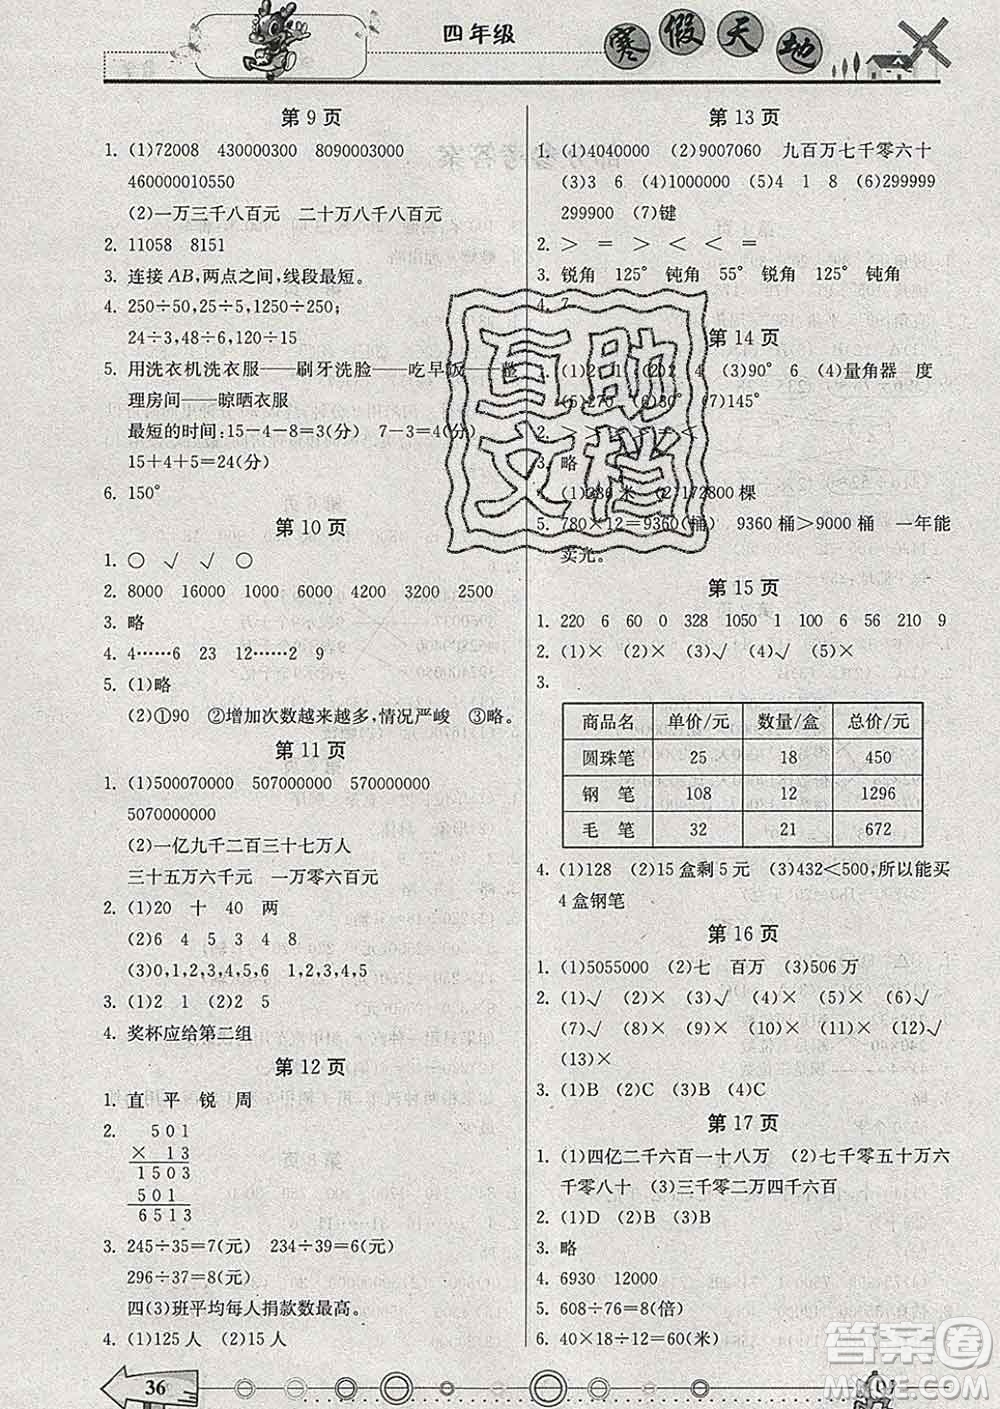 四年级
寒假天地
第9页
1. (1)72008 430000300 8090003000
460000010550
(2)一万三千八百元 二十万八千八百元
2. 11058 8151
3. 连接AB,两点之间,线段最短。
4. 250÷50,25÷5,1250÷250;
24÷3,48÷6,120÷15
5. 用洗衣机洗衣服——刷牙洗脸——吃早饭——整
理房间——晾晒衣服
最短的时间:15-4-8=3(分) 7-3=4(分)
15+4+5=24(分)
6. 150°
第10页
1. ○ √ √ ○
2. 8000 16000 1000 4000 3200 2500
3. 略
4. 4……6 23 12……2 9
5. (1)略
(2)①90 ②增加次数越来越多,情况严峻 ③略。
第11页
1. (1)500070000 507000000 570000000
5070000000
(2)一亿九千二百三十七万人
三十五万六千元 一万零六百元
2. (1)20 十 40 两
(2)6 4 5 9
(3)0,1,2,3,4,5,6 0,1,2,3,4,5
3. (1)2 1 (2)2 5
4. 奖杯应给第二组
第12页
1. 直 平 锐 周
2. 501
× 13
1503
501
6513
3. 245÷35=7(元) 234÷39=6(元)
296÷37=8(元)
四(3)班平均每人捐款数最高。
4. (1)125人 (2)15人
36
第13页
1. (1)4040000 (2)9007060 九百万七千零六十
(3)3 6 (4)1000000 (5)4 1 8 (6)299999
299900 (7)键
2. > = > < < =
3. 锐角 125° 钝角 55° 锐角 125° 钝角
4. 7
第14页
1. (1)2 1 (2)2 4 (3)90° 6 (4)量角器 度
(5)270 (6)30° (7)145°
2. > > < = = <
3. 略
4. (1)286米 (2)172800棵
5. 780×12=9360(桶) 9360桶>9000桶 一年能
卖光。
第15页
1. 220 6 60 0 328 1050 1 100 6 56 210 9
2. (1)× (2)× (3)√ (4)√ (5)×
3.
商品名 单价/元 数量/盒 总价/元
圆珠笔 25 18 450
钢笔 108 12 1296
毛笔 32 21 672
4. (1)128 (2)15盒剩5元 (3)432<500,所以能买
4盒钢笔
第16页
1. (1)5055000 (2)七 百万 (3)506万
2. (1)√ (2)× (3)× (4)× (5)× (6)√
(7)√ (8)× (9)× (10)√ (11)× (12)×
(13)×
3. (1)B (2)C (3)B (4)C
第17页
1. (1)四亿二千六百一十八万 (2)七千零五十万六
千零八十 (3)三千零二万四千六百
2. (1)D (2)B (3)B
3. 略
4. 6930 12000
5. 608÷76=8(倍)
6. 40×18÷12=60(米)
互助
文档
答案圈